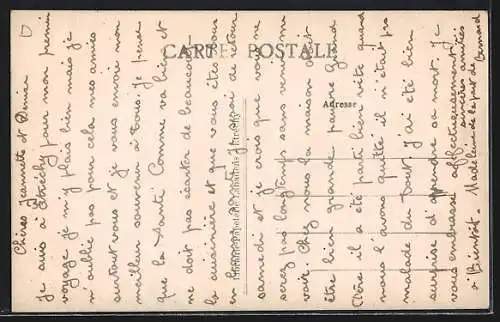 CARTE POSTALE
Adresse
Chères Jeannette et Denise
Je suis à pour mon premier
voyage je m'y plais bien mais je
n'oublie pas pour cela mes amies
surtout vous et je vous envoie mon
meilleur souvenir à tous. Je pense
que la santé comme va bien et
ne doit pas s'écarter de beaucoup
la cuisinière et que vous êtes tous
en bonne santé. Je serai de retour
samedi et je crois que vous ne
serez pas longtemps sans venir me
voir. Chez nous la maison doit
être bien grande pauvre Grand
Père il a été parti bien vite quand
nous l'avons quitté il n'était pas
malade du tout j'ai été bien
surprise d'apprendre sa mort. Je
vous embrasse affectueusement
à Bientôt. Madeleine
amitiés
de la part de Bernard